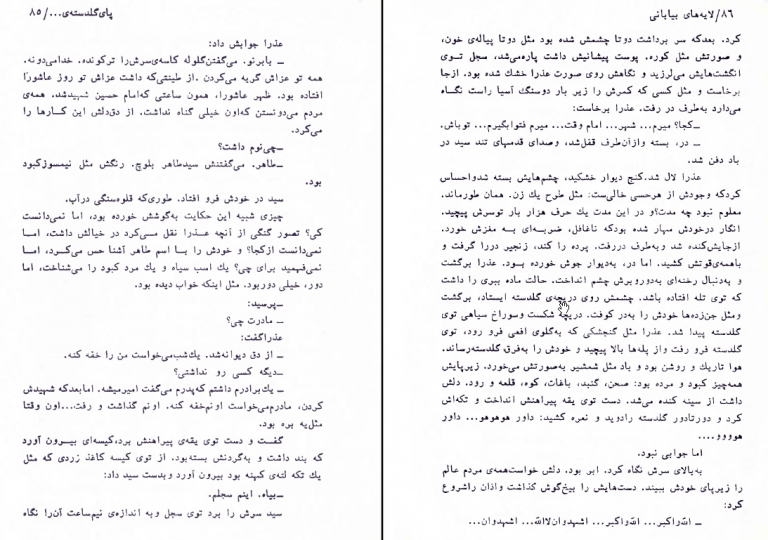 پای‌گلدسته‌ی.../ ۸۵
عذرا جوابش داد:
ــ بابرنو. می‌گفتن‌گلوله کاسه‌ی‌سرش‌را ترکونده. خدامی‌دونه.
همه تو عزاش گریه می‌کردن. از طینتی‌که داشت عزاش تو روز عاشورا
افتاده بود. ظهر عاشورا، همون ساعتی که‌امام حسین شهیدشد. همه‌ی
مردم می‌دونستن که‌اون خیلی گناه نداشت. از دق‌دلش این کارها را
می‌کرد.
ــ چی‌نوم داشت؟
ــ طاهر. می‌گفتنش سیدطاهر بلوچ. رنگش مثل نیمسوزکبود
بود.
سید در خودش فرو افتاد. طوری‌که قلوه‌سنگی درآب.
چیزی شبیه این حکایت به‌گوشش خورده بود، اما نمی‌دانست
کی؟ تصور گنگی از آنچه عذرا نقل می‌کرد در خیالش داشت، اما
نمی‌دانست ازکجا؟ و خودش را با اسم طاهر آشنا حس می‌کرد، اما
نمی‌فهمید برای چی؟ یك اسب سیاه و یك مرد کبود را می‌شناخت، اما
دور، خیلی دوربود. مثل اینکه خواب دیده بود.
ــ پرسید:
ــ مادرت چی؟
عذراگفت:
ــ از دق دیوانه‌شد. یك‌شب‌می‌خواست من را خفه کنه.
ــ دیگه کسی رو نداشتی؟
ــ یك‌برادرم داشتم که‌پدرم می‌گفت امیرمیشه. امابعدکه شهیدش
کردن، مادرم‌می‌خواست اونم‌خفه کنه. اونم گذاشت و رفت...اون وقتا
مثل‌یه بره بود.
گفت و دست توی یقه‌ی پیراهنش برد،کیسه‌ای بیرون آورد
که بند داشت و به‌گردنش بسته‌بود. از توی کیسه کاغذ زردی که مثل
یك تکه لته‌ی کهنه بود بیرون آورد وبدست سید داد:
ــ بیاه. اینم سجلم.
سید سرش را برد توی سجل وبه اندازه‌ی نیم‌ساعت آن‌را نگاه
۸۶/لایه‌های بیابانی
کرد. بعدکه سر برداشت دوتا چشمش شده بود مثل دوتا پیاله‌ی خون،
و صورتش مثل کوره. پوست پیشانیش داشت پاره‌می‌شد، سجل توی
انگشت‌هایش می‌لرزید و نگاهش روی صورت عذرا خشك شده بود. ازجا
برخاست و مثل کسی که کمرش را زیر بار دوسنگ آسیا راست نگاه
می‌دارد به‌طرف در رفت. عذرا برخاست:
ــ کجا؟ میرم... شهر... امام وقت... میرم فتوابگیرم... توباش.
ــ در، بسته وازآن‌طرف قفل‌شد، وصدای قدمهای تند سید در
باد دفن شد.
عذرا لال شد.کنج دیوار خشکید، چشم‌هایش بسته شدواحساس
کردکه وجودش از هرحسی خالی‌ست: مثل طرح یك زن. همان طورماند.
معلوم نبود چه مدت؟و در این مدت یك حرف هزار بار توسرش پیچید.
انگار درخودش مهار شده بودکه ناغافل، ضربه‌ای به مغزش خورد.
ازجایش‌کنده شد وبه‌طرف دررفت. پرده را کند، زنجیر دررا گرفت و
باهمه‌ی‌قوتش کشید. اما در، به‌دیوار جوش خورده بود. عذرا برگشت
و به‌دنبال رخنه‌ای به‌دوروبرش چشم انداخت. حالت ماده ببری را داشت
که توی تله افتاده باشد. چشمش روی دریچه‌ی گلدسته ایستاد، برگشت
ومثل جن‌زده‌ها خودش را به‌در کوفت. دریچه شکست وسوراخ سیاهی توی
گلدسته پیدا شد. عذرا مثل گنجشکی که به‌گلوی افعی فرو رود، توی
گلدسته فرو رفت واز پله‌ها بالا پیچید و خودش را به‌فرق گلدسته‌رساند.
هوا تاریك و روشن بود و باد مثل شمشیر به‌صورتش می‌خورد. زیرپایش
همه‌چیز کبود و مرده بود: صحن، گنبد، باغات، کوه، قلعه و رود. دلش
داشت از سینه کنده می‌شد. دست توی یقه پیراهنش انداخت و تکه‌اش
کرد و دورتادور گلدسته رادوید و نعره کشید: داور هوهوهو... داور
هوووو....
اما جوابی نبود.
به‌بالای سرش نگاه کرد. ابر بود. دلش خواست‌همه‌ی مردم عالم
را زیرپای خودش ببیند. دست‌هایش را بیخ‌گوش گذاشت واذان راشروع
کرد:
ــ الله‌واکبر... الله‌واکبر... اشهدوان‌لاالله... اشهدوان...